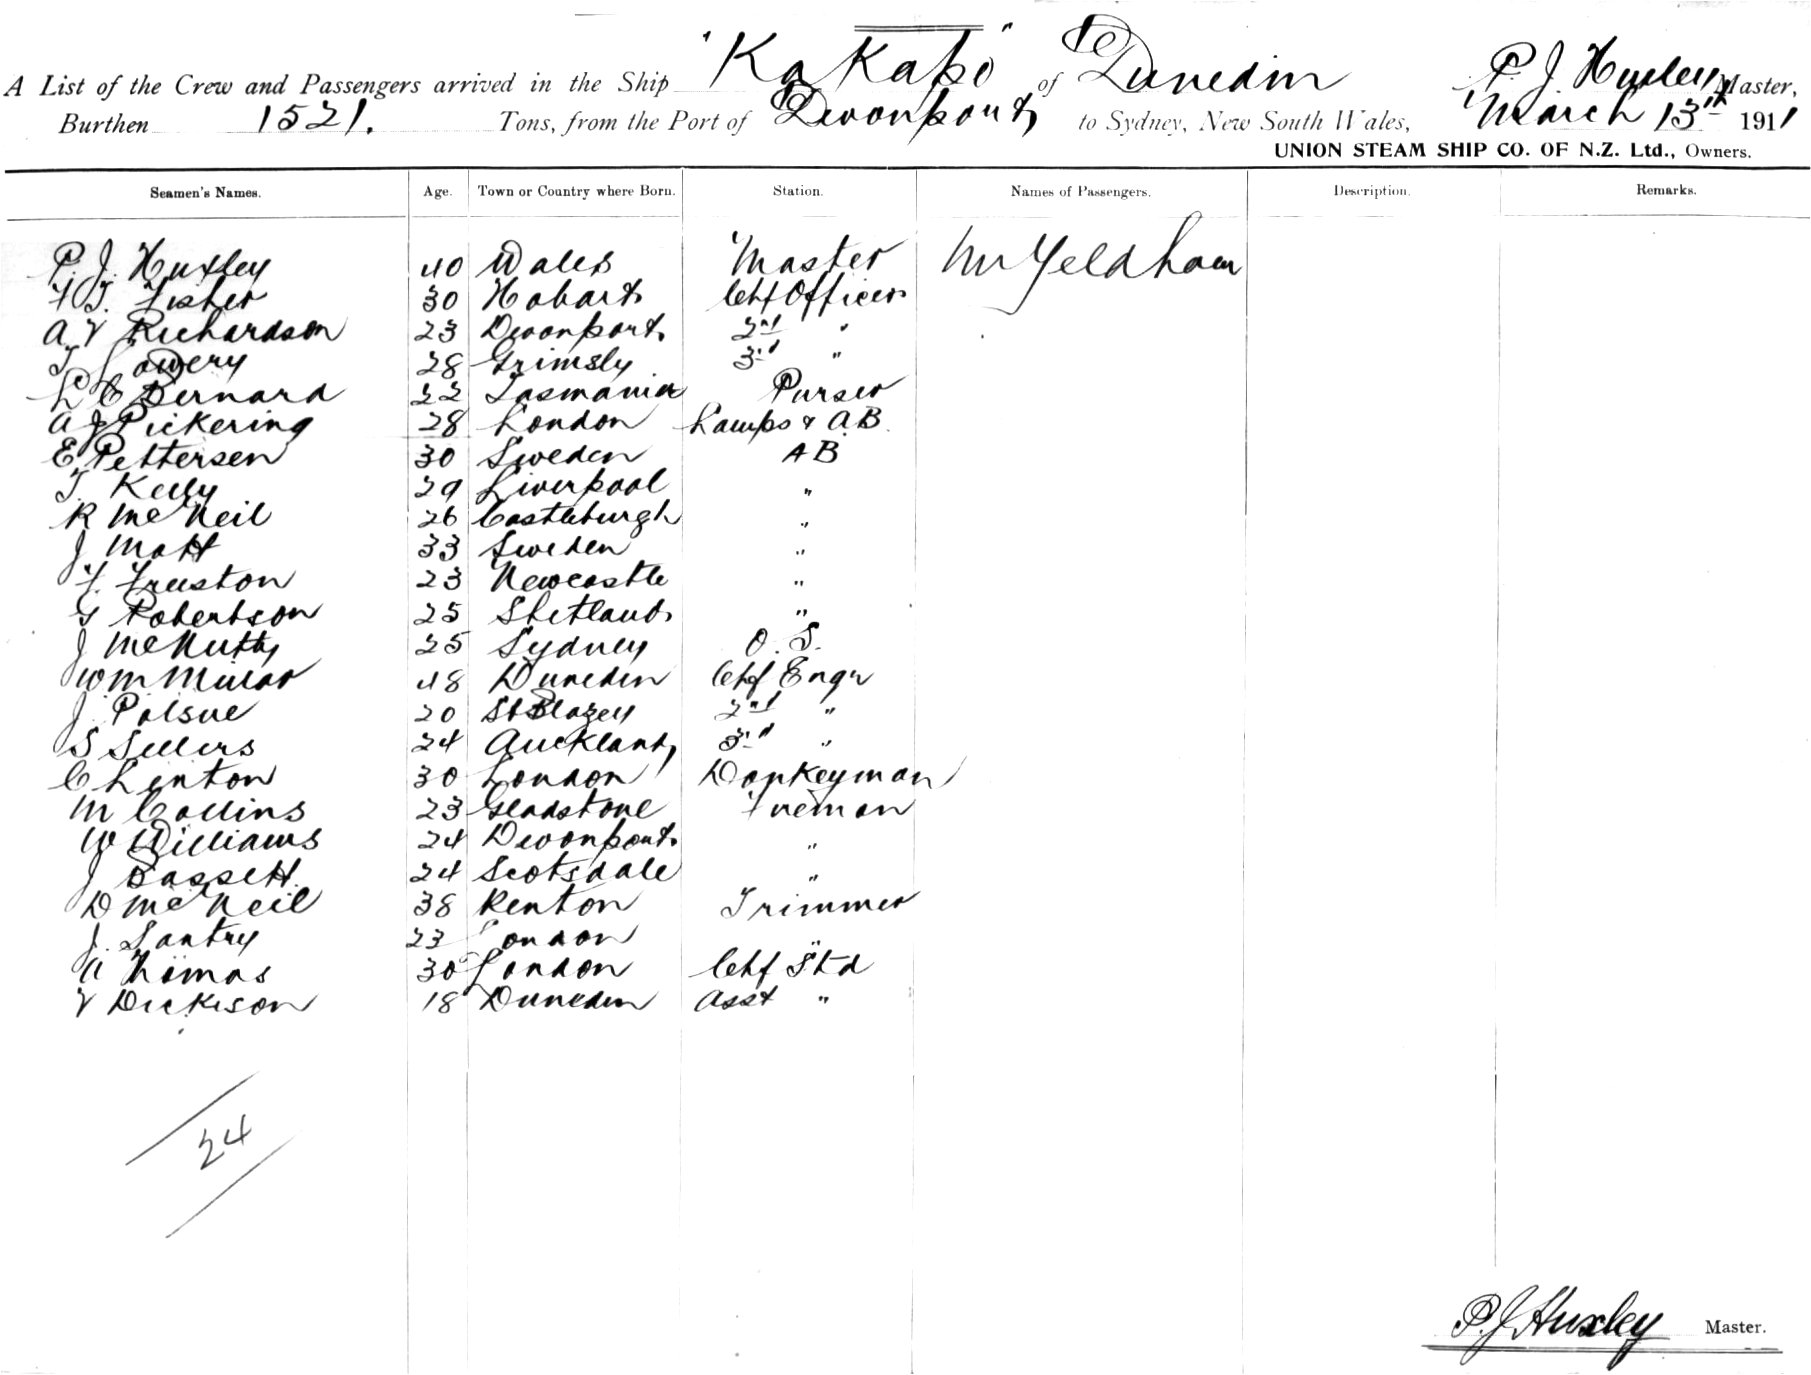 A List of the Crew and Passengers arrived in the Ship "Kakapo" of Dunedin P. J. Huxley Master,
Burthen 1521. Tons, from the Port of Devonport to Sydney, New South Wales, March 13th 1911
UNION STEAM SHIP CO. OF N.Z. Ltd., Owners.
Seamen's Names. Age. Town or Country where Born. Station. Names of Passengers. Description. Remarks.
P. J. Huxley 40 Wales Master Mr Yeldham
F. J. Fisher 30 Hobart Chf Officer
A V Richardson 23 Devonport 2nd "
T Lowery 28 Grimsly 3rd "
L C Bernard 22 Tasmania Purser
A J Pickering 28 London Lamps & A.B.
E Pettersen 30 Sweden AB
T. Kelly 29 Liverpool "
R McNeil 26 Castleburgh "
J Matt 33 Sweden "
F. Fruston 23 Newcastle "
G Robertson 25 Shetland "
J McNutty 25 Sydney O. S.
Wm Millar 48 Dunedin Chf Engr
J Polsue 20 St Blazey 2nd "
S Sellers 24 Auckland 3rd "
C Linton 30 London Donkeyman
M Collins 23 Gladstone Fireman
W Williams 24 Devonport "
J Bassett 24 Scotsdale "
D McNeil 38 Renton Trimmer
J. Santry 23 London "
A Thomas 30 London Chf Std
V Dickison 18 Dunedin Asst "
24
P. J. Huxley Master.